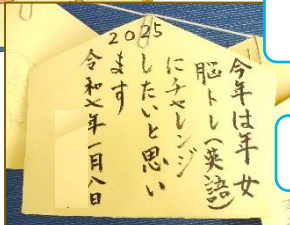 2025
今年は年女
脳トレ(英語)
にチャレンジ
したいと思い
ます
令和七年一月八日